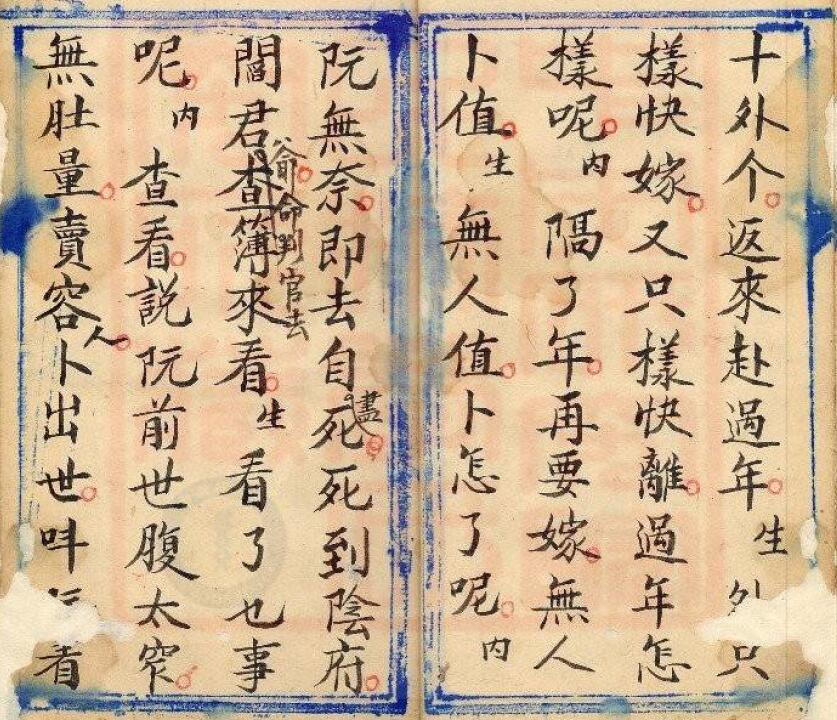 十外个返來赴過年生外只
樣快嫁又只樣快離過年怎
樣呢内隔了年再要嫁無人
卜值生無人值卜怎了呢内
阮無奈即去自死死到陰府
盡
閻君查簿來看生看了乜事
命判官去
呢内查看說阮前世腹太窄
無肚量賣容卜出世呌看
人